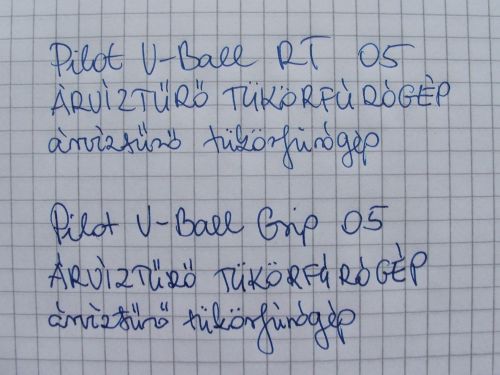 Pilot V-Ball RT 05
ÁRVÍZTŰRŐ TÜKÖRFÚRÓGÉP
árvíztűrő tükörfúrógép
Pilot V-Ball Grip 05
ÁRVÍZTŰRŐ TÜKÖRFÚRÓGÉP
árvíztűrő tükörfúrógép